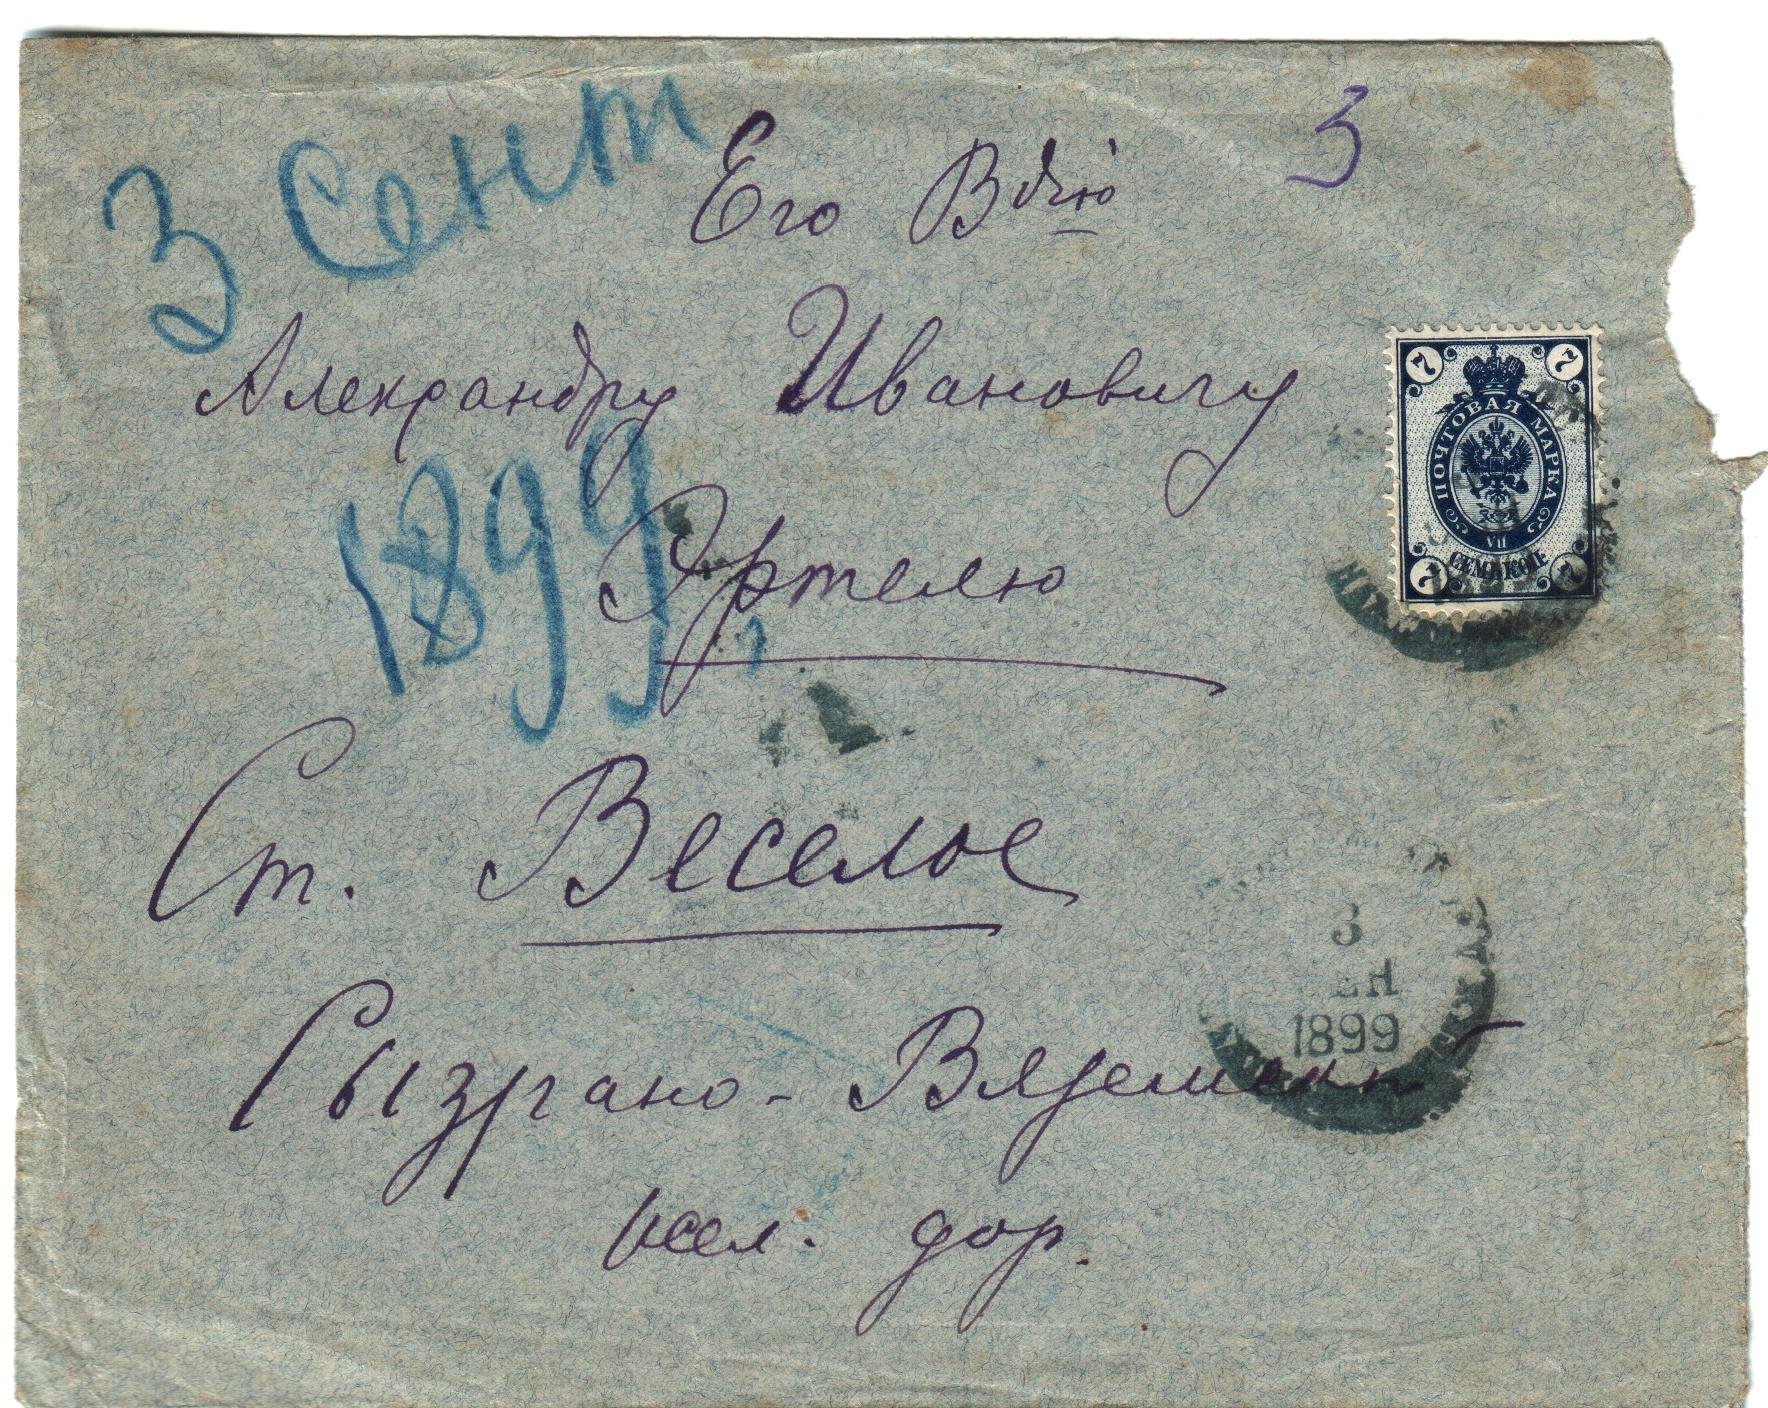 3 Сент
3
Его Вбчiю
Александру Ивановичу
1899
Эртелю
7 7
ПОЧТОВАЯ МАРКА
VII
СЕМЬ КОП
7 7
Ст. Веселое
3
1899
Сызрано-Вяземск
жел. дор.